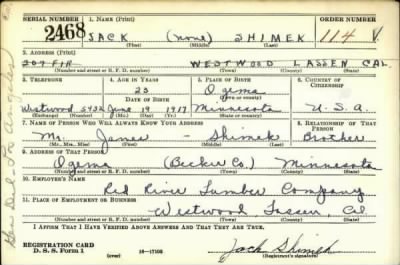 SERIAL NUMBER 1. NAME (Print) ORDER NUMBER
2468 JACK (none) SHIMEK 114 V
(First) (Middle) (Last)
2. ADDRESS (Print)
207 FIR WESTWOOD LASSEN CAL
(Number and street or R. F. D. number) (Town) (County) (State)
3. TELEPHONE 4. AGE IN YEARS 5. PLACE OF BIRTH 6. COUNTRY OF CITIZENSHIP
23 Ogema
DATE OF BIRTH (Town or county)
Westwood 5432 June 19 1917 Minnesota U.S.A.
(Exchange) (Number) (Mo.) (Day) (Yr.) (State or country)
7. NAME OF PERSON WHO WILL ALWAYS KNOW YOUR ADDRESS 8. RELATIONSHIP OF THAT PERSON
Mr. James - Shimek Brother
(Mr., Mrs., Miss) (First) (Middle) (Last)
9. ADDRESS OF THAT PERSON
Ogema (Becker Co.) Minnesota
(Number and street or R. F. D. number) (Town) (County) (State)
10. EMPLOYER'S NAME
Red River Lumber Company
11. PLACE OF EMPLOYMENT OR BUSINESS
Westwood Lassen, Cal
(Number and street or R. F. D. number) (Town) (County) (State)
I AFFIRM THAT I HAVE VERIFIED ABOVE ANSWERS AND THAT THEY ARE TRUE.
REGISTRATION CARD
D. S. S. Form 1 (over) 16-17105 Jack Shimek
(Registrant's signature)
Los Angeles